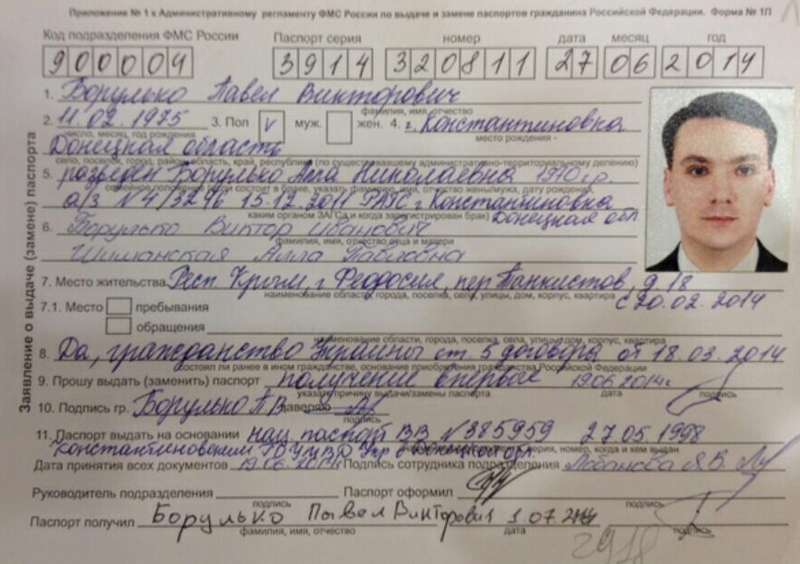 Приложение № 1 к Административному регламенту ФМС России по выдаче и замене паспортов гражданина Российской Федерации. Форма № 1П
Код подразделения ФМС России Паспорт серия номер дата месяц год
900004 3914 320811 27 06 2014
1. Борулько Павел Викторович
фамилия, имя, отчество
2. 11.02.1975 3. Пол V муж. жен. 4. г. Константиновка
число, месяц, год рождения место рождения -
Донецкая область
село, поселок, город, район, область, край, республика (по существовавшему административно-территориальному делению)
5. разведен Борулько Алла Николаевна 1970 г.р.
семейное положение (если состоит в браке, указать фамилию, имя, отчество жены/мужа, дату рождения,
а/з № 4/3296 15.12.2011 РАГС г. Константиновка
каким органом ЗАГСа и когда зарегистрирован брак) Донецкая обл
6. Борулько Виктор Иванович
фамилия, имя, отчество отца и матери
Шиманская Алла Павловна
7. Место жительства Респ Крым, г. Феодосия, пер Танкистов, д. 18
наименование области, города, поселка, села, улицы, дом, корпус, квартира
7.1. Место пребывания с 20.02.2014
обращения
наименование области, города, поселка, села, улицы, дом, корпус, квартира
8. Да, гражданство Украины ст 5 договора от 18.03.2014
состоял ли ранее в ином гражданстве, основание приобретения гражданства Российской Федерации
9. Прошу выдать (заменить) паспорт получение впервые 19.06.2014г.
указать причину выдачи/замены паспорта дата подпись
10. Подпись гр. Борулько П.В. заверяю
подпись
11. Паспорт выдать на основании нац паспорт ВВ № 385959 27.05.1998
серия, номер, когда и кем выдан
Константиновским ГО УМВД Укр в Донецкой обл.
Дата принятия всех документов 19.06.2014 Подпись сотрудника подразделения Лобанова Я.В.
Руководитель подразделения Паспорт оформил
подпись подпись
Паспорт получил Борулько Павел Викторович 1.07.2014
фамилия, имя, отчество дата подпись
Заявление о выдаче (замене) паспорта